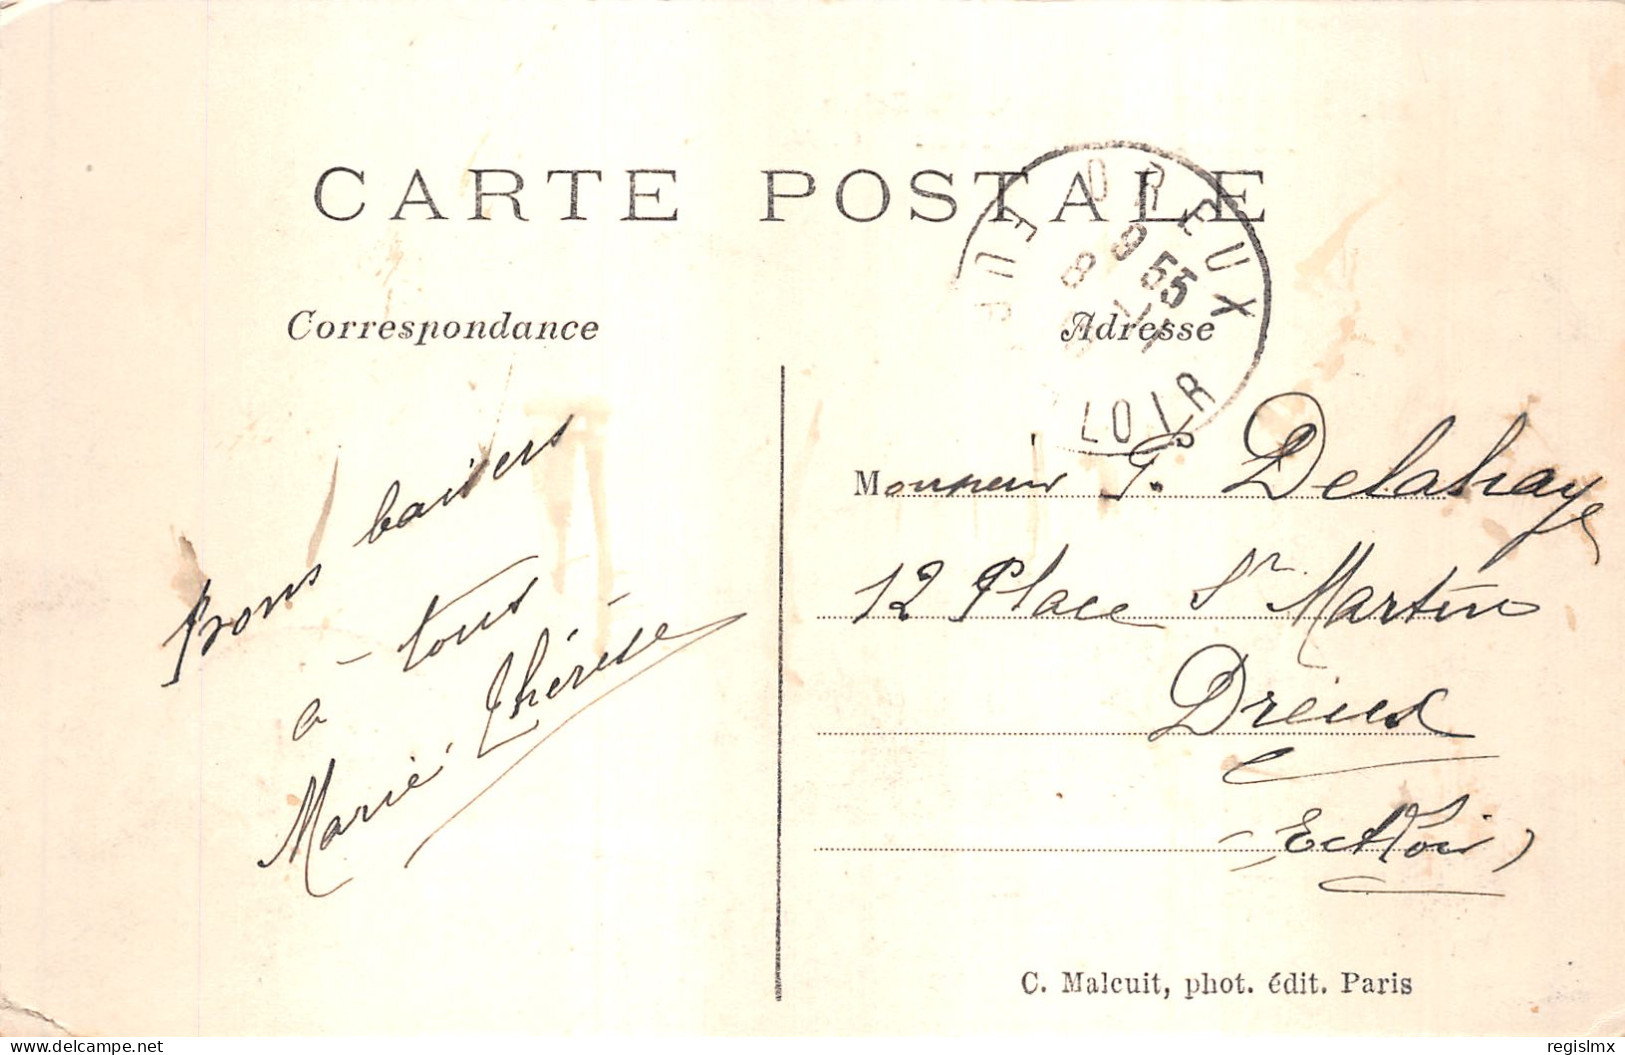 CARTE POSTALE
Correspondance
Adresse
DREUX
8 55
EURE
LOIR
Bons baisers
à tous
Marie Thérèse
Monsieur P. Delahaye
12 Place St Martin
Dreux
(E et Loir)
C. Malcuit, phot. édit. Paris
www.delcampe.net
regislmx